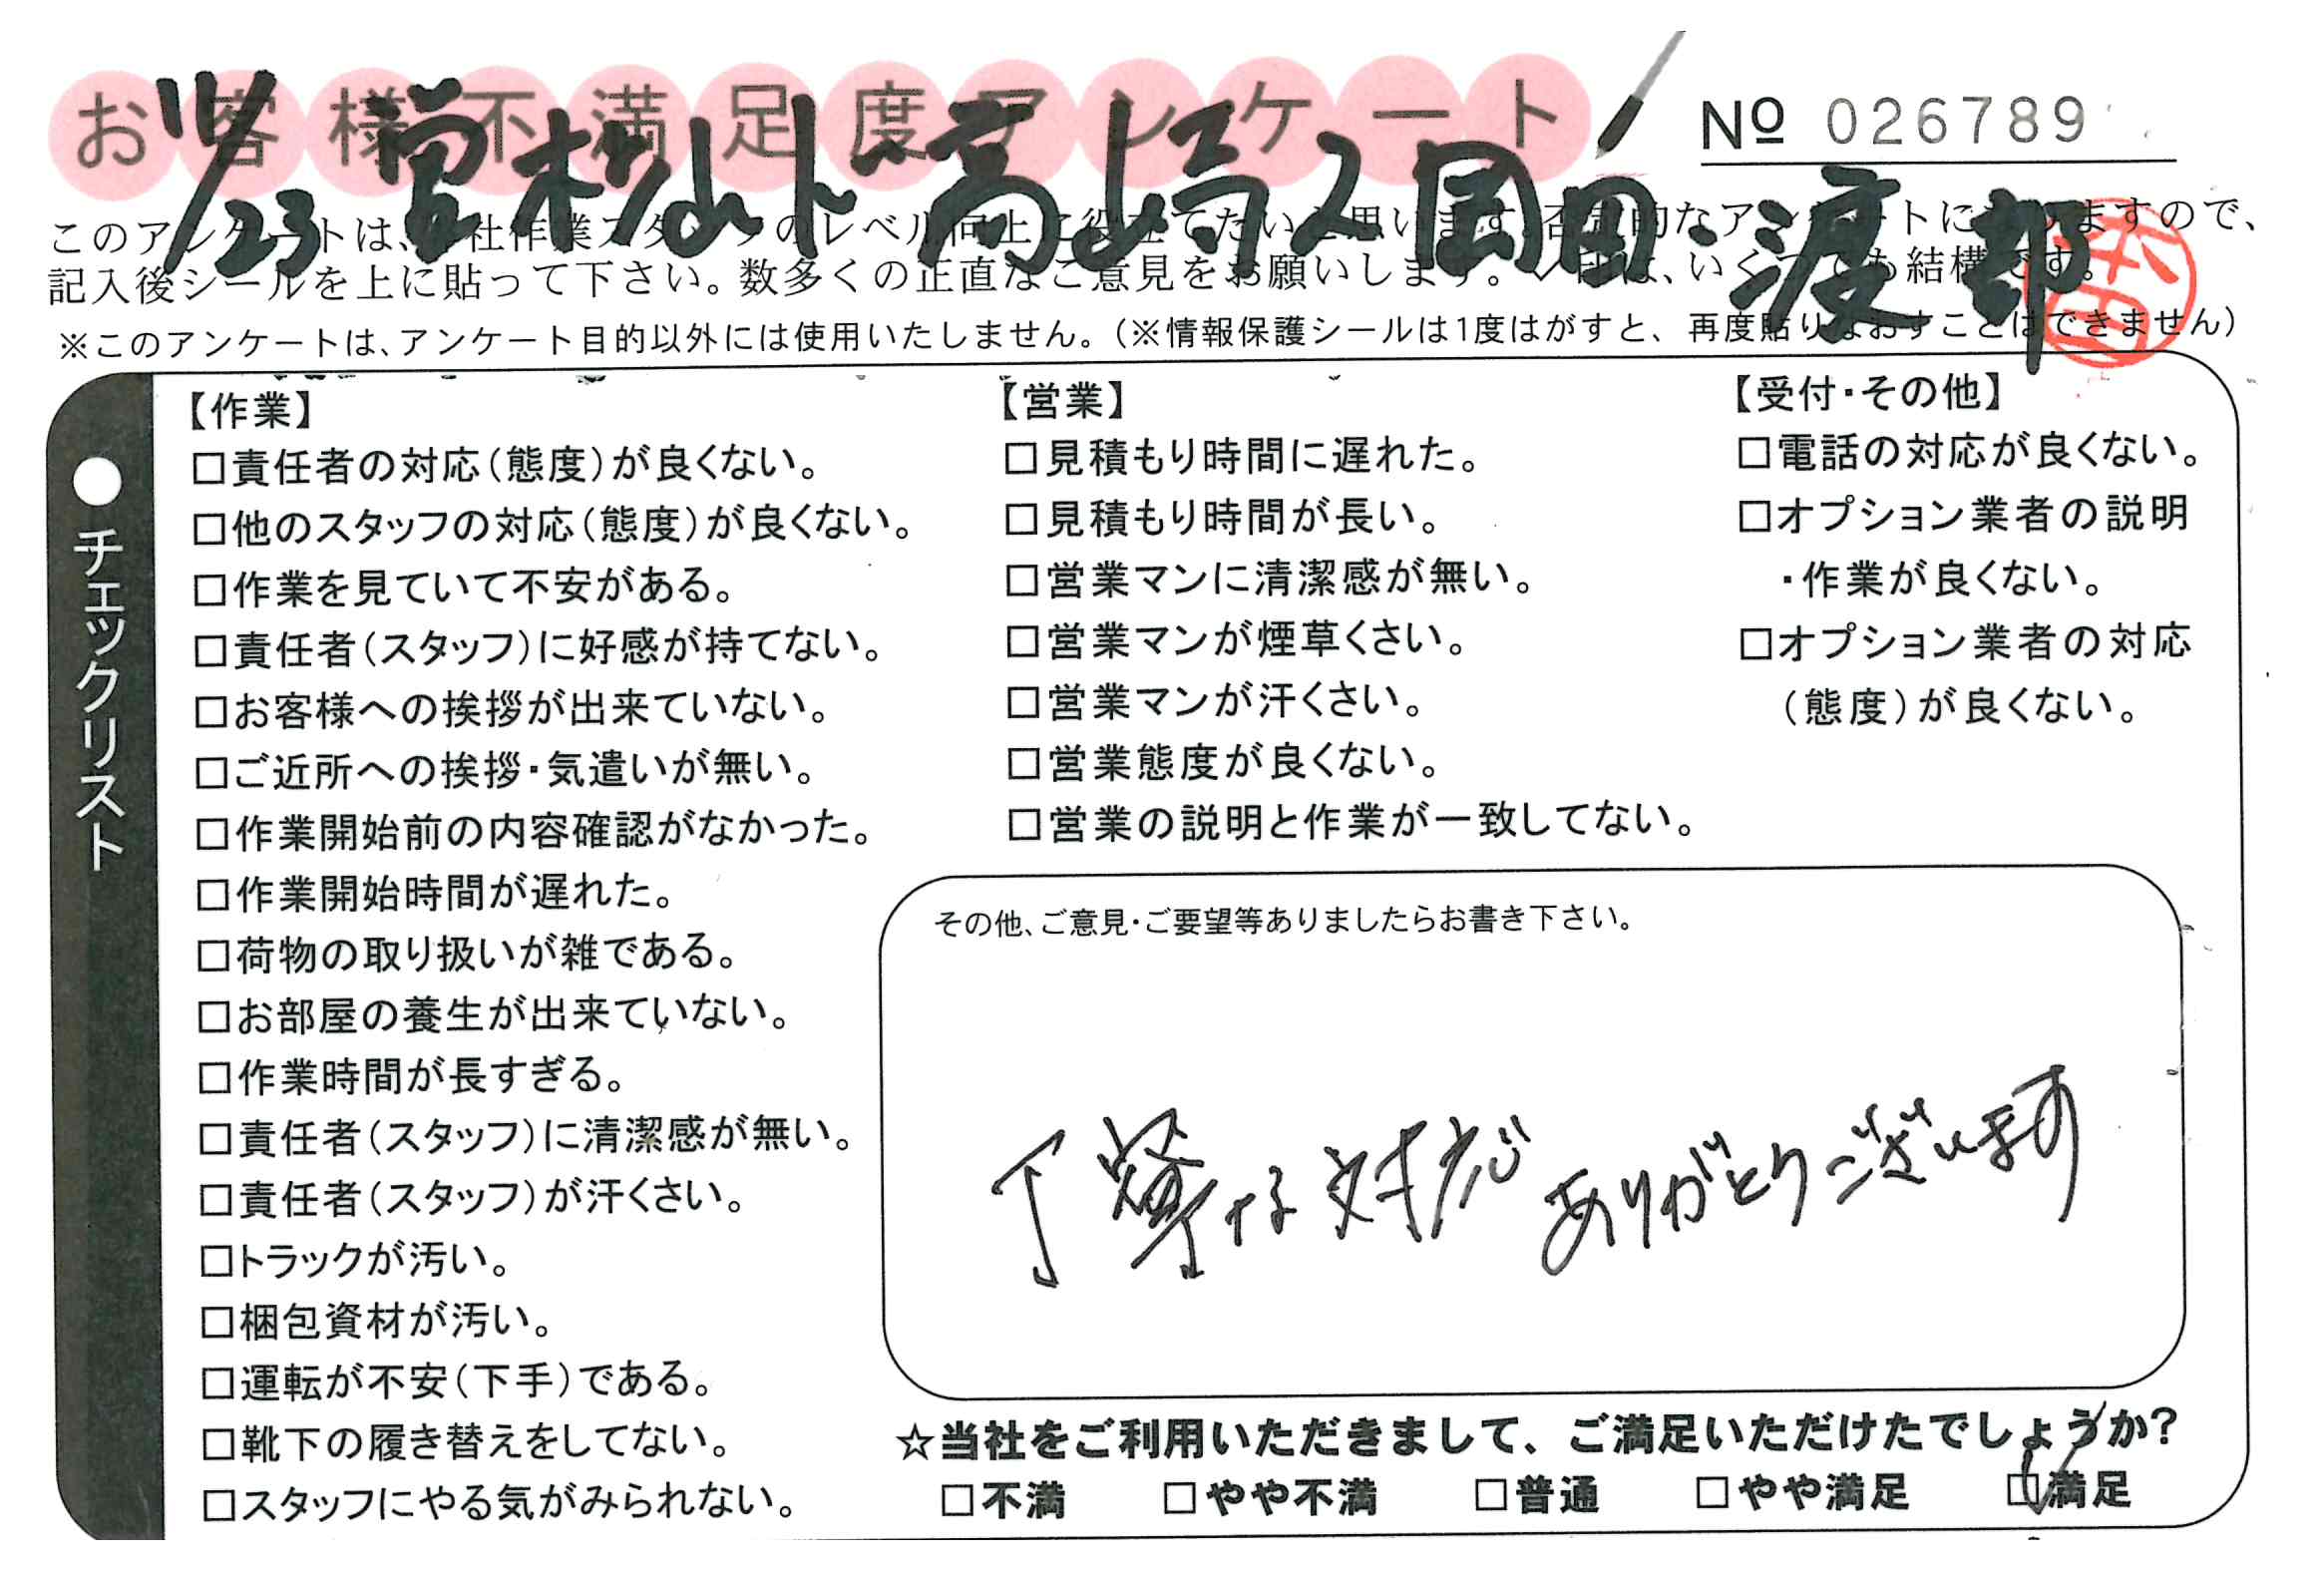 お客様不満足度アンケート
№ 026789
11/23 営 杉山 ト 高崎 ス 岡田・渡部
このアンケートは、当社作業スタッフのレベル向上に役立てたいと思います。否定的なアンケートになりますので、
記入後シールを上に貼って下さい。数多くの正直なご意見をお願いします。✓印は、いくつでも結構です。
※このアンケートは、アンケート目的以外には使用いたしません。(※情報保護シールは1度はがすと、再度貼りなおすことはできません)
●チェックリスト
【作業】
□責任者の対応(態度)が良くない。
□他のスタッフの対応(態度)が良くない。
□作業を見ていて不安がある。
□責任者(スタッフ)に好感が持てない。
□お客様への挨拶が出来ていない。
□ご近所への挨拶・気遣いが無い。
□作業開始前の内容確認がなかった。
□作業開始時間が遅れた。
□荷物の取り扱いが雑である。
□お部屋の養生が出来ていない。
□作業時間が長すぎる。
□責任者(スタッフ)に清潔感が無い。
□責任者(スタッフ)が汗くさい。
□トラックが汚い。
□梱包資材が汚い。
□運転が不安(下手)である。
□靴下の履き替えをしてない。
□スタッフにやる気がみられない。
【営業】
□見積もり時間に遅れた。
□見積もり時間が長い。
□営業マンに清潔感が無い。
□営業マンが煙草くさい。
□営業マンが汗くさい。
□営業態度が良くない。
□営業の説明と作業が一致してない。
【受付・その他】
□電話の対応が良くない。
□オプション業者の説明
・作業が良くない。
□オプション業者の対応
(態度)が良くない。
その他、ご意見・ご要望等ありましたらお書き下さい。
丁寧な対応ありがとうございます
☆当社をご利用いただきまして、ご満足いただけたでしょうか?
□不満 □やや不満 □普通 □やや満足 ☑満足